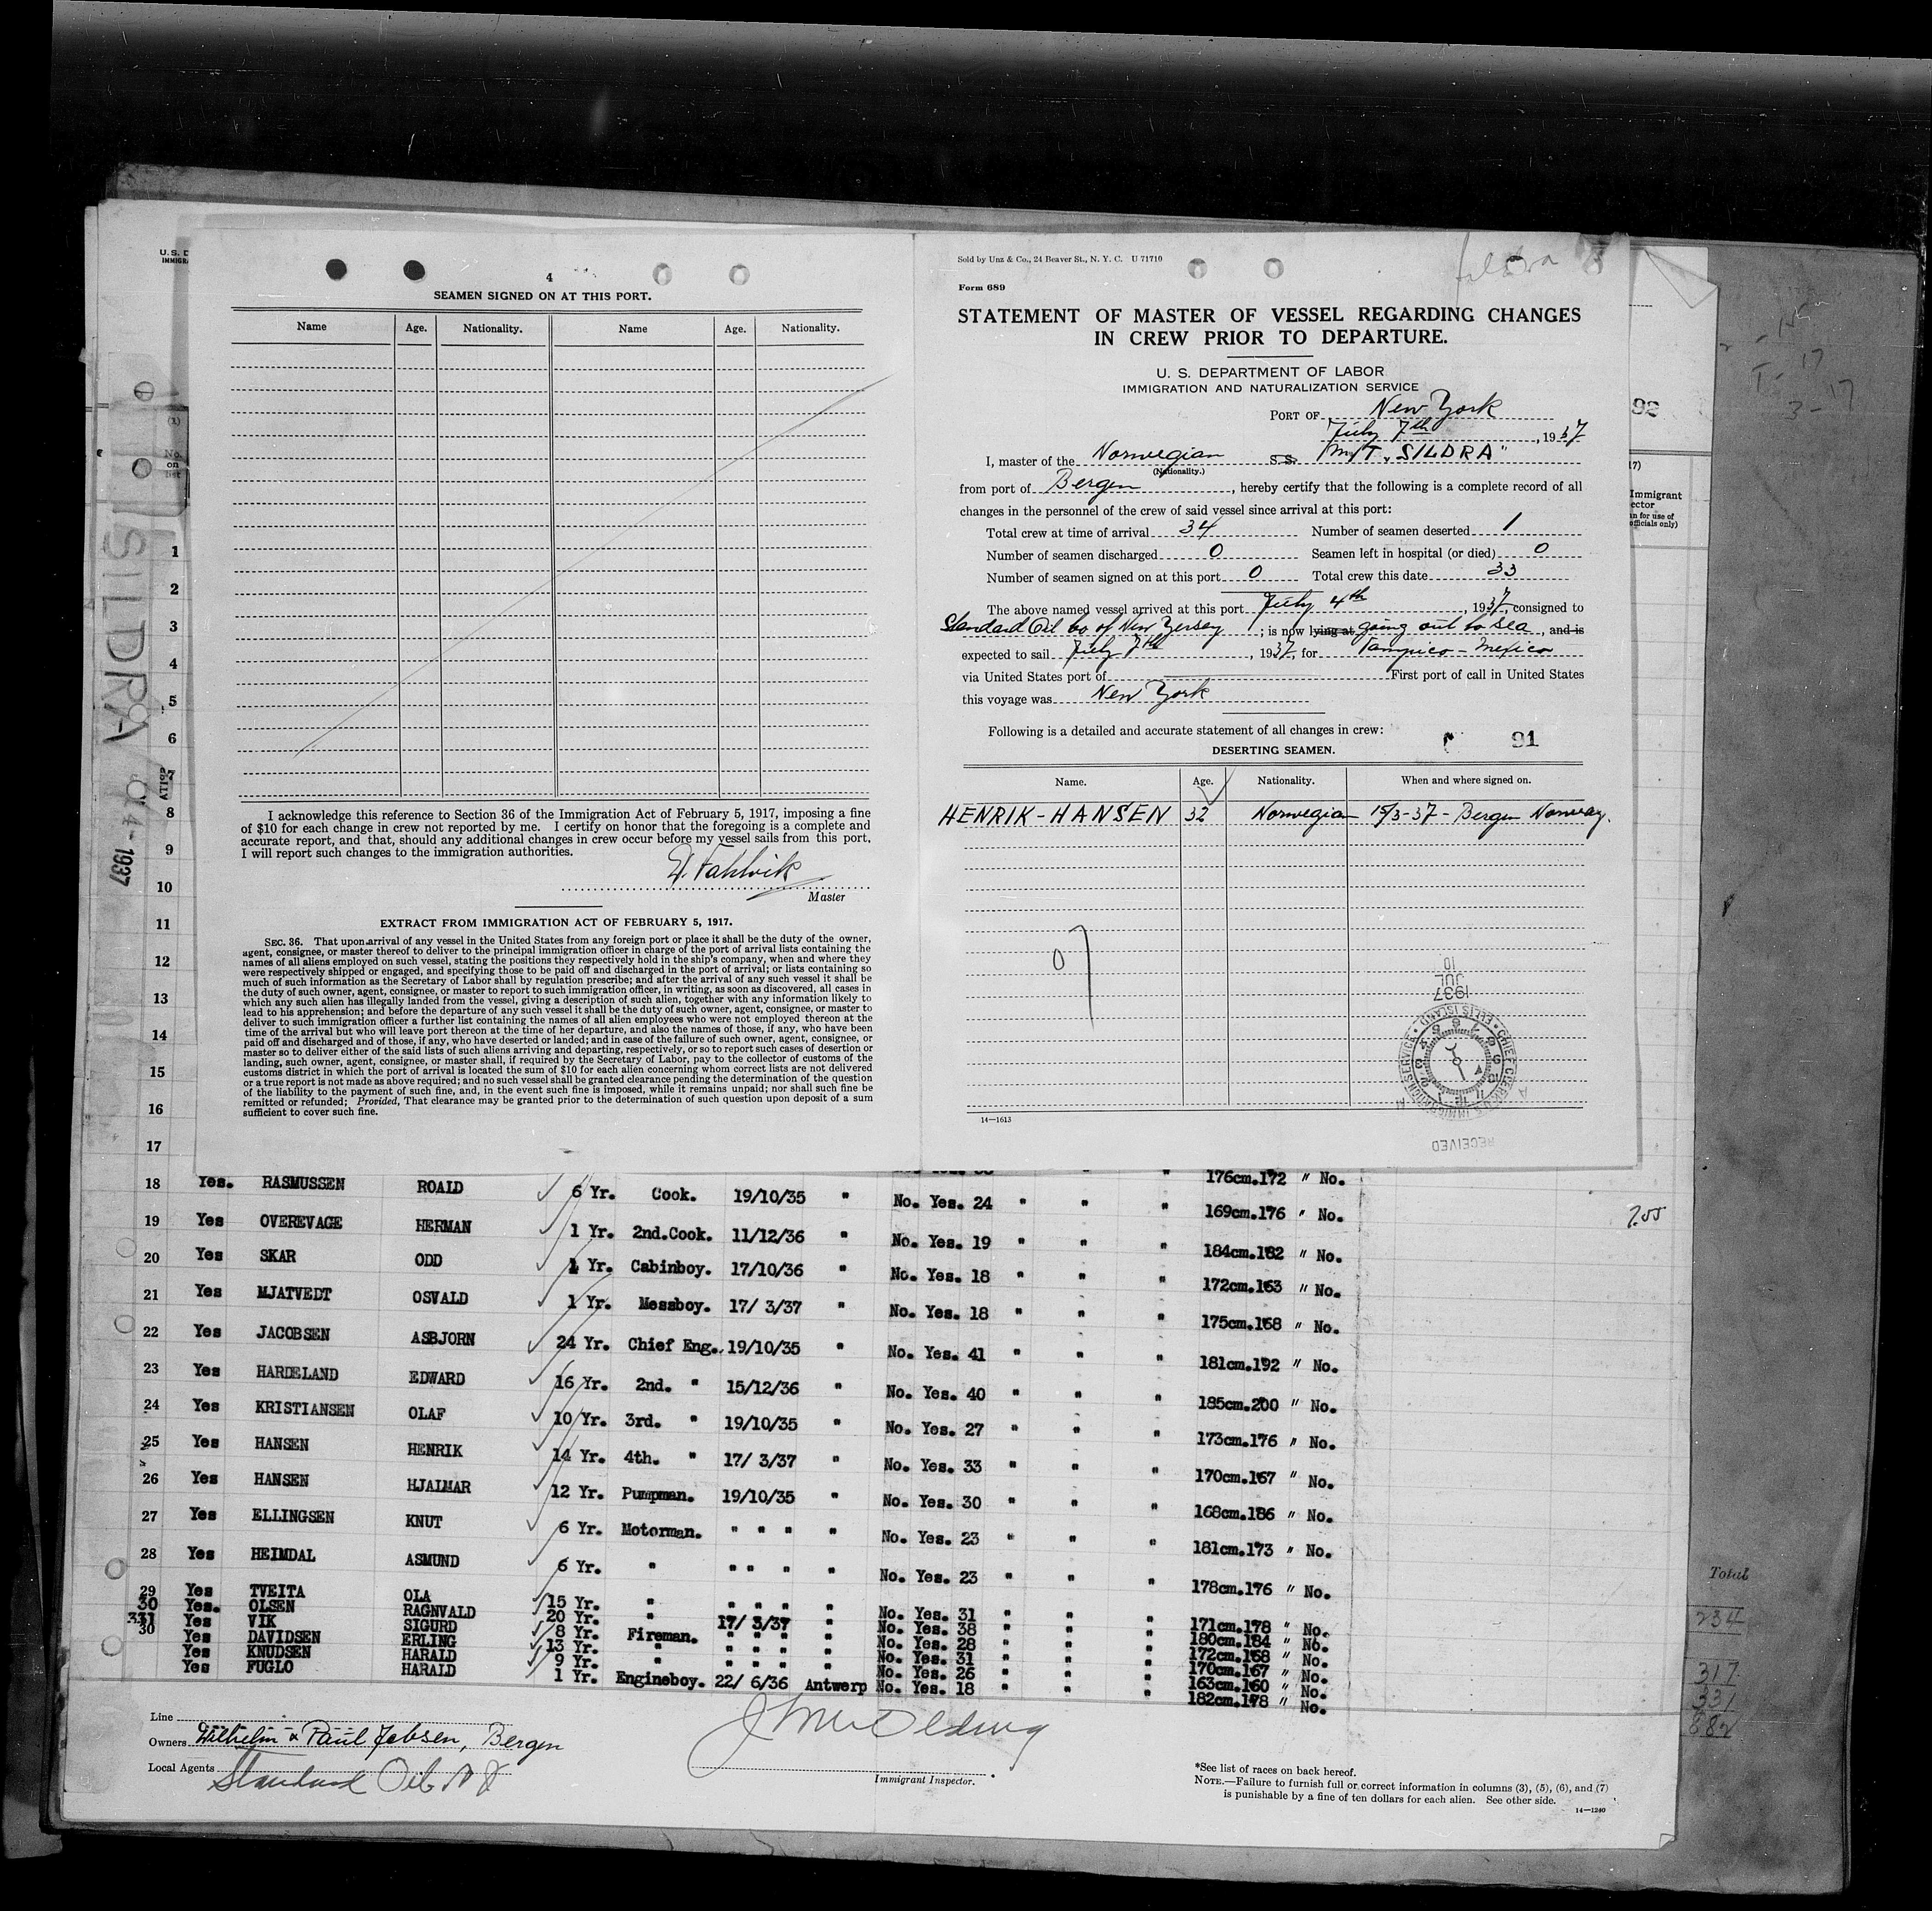 4
SEAMEN SIGNED ON AT THIS PORT.
Name Age. Nationality. Name Age. Nationality.
I acknowledge this reference to Section 36 of the Immigration Act of February 5, 1917, imposing a fine
of $10 for each change in crew not reported by me. I certify on honor that the foregoing is a complete and
accurate report, and that, should any additional changes in crew occur before my vessel sails from this port,
I will report such changes to the immigration authorities.
Master
EXTRACT FROM IMMIGRATION ACT OF FEBRUARY 5, 1917.
SEC. 36. That upon arrival of any vessel in the United States from any foreign port or place it shall be the duty of the owner,
agent, consignee, or master thereof to deliver to the principal immigration officer in charge of the port of arrival lists containing the
names of all aliens employed on such vessel, stating the positions they respectively hold in the ship's company, when and where they
were respectively shipped or engaged, and specifying those to be paid off and discharged in the port of arrival; or lists containing so
much of such information as the Secretary of Labor shall by regulation prescribe; and after the arrival of any such vessel it shall be
the duty of such owner, agent, consignee, or master to report to such immigration officer, in writing, as soon as discovered, all cases in
which any such alien has illegally landed from the vessel, giving a description of such alien, together with any information likely to
lead to his apprehension; and before the departure of any such vessel it shall be the duty of such owner, agent, consignee, or master to
deliver to such immigration officer a further list containing the names of all alien employees who were not employed thereon at the
time of the arrival but who will leave port thereon at the time of her departure, and also the names of those, if any, who have been
paid off and discharged and of those, if any, who have deserted or landed; and in case of the failure of such owner, agent, consignee, or
master so to deliver either of the said lists of such aliens arriving and departing, respectively, or so to report such cases of desertion or
landing, such owner, agent, consignee, or master shall, if required by the Secretary of Labor, pay to the collector of customs of the
customs district in which the port of arrival is located the sum of $10 for each alien concerning whom correct lists are not delivered
or a true report is not made as above required; and no such vessel shall be granted clearance pending the determination of the question
of the liability to the payment of such fine, and, in the event such fine is imposed, while it remains unpaid; nor shall such fine be
remitted or refunded; Provided, That clearance may be granted prior to the determination of such question upon deposit of a sum
sufficient to cover such fine.
Sold by Unz & Co., 24 Beaver St., N. Y. C. U 71710
Form 689
STATEMENT OF MASTER OF VESSEL REGARDING CHANGES
IN CREW PRIOR TO DEPARTURE.
U. S. DEPARTMENT OF LABOR
IMMIGRATION AND NATURALIZATION SERVICE
PORT OF New York
July 7th, 1937
I, master of the Norwegian S.S. M/T "SILDRA"
(Nationality.)
from port of Bergen, hereby certify that the following is a complete record of all
changes in the personnel of the crew of said vessel since arrival at this port:
Total crew at time of arrival 34 Number of seamen deserted 1
Number of seamen discharged 0 Seamen left in hospital (or died) 0
Number of seamen signed on at this port 0 Total crew this date 33
The above named vessel arrived at this port July 4th, 1937, consigned to
Standard Oil Co of New Jersey; is now lying at going out to sea, and is
expected to sail July 7th, 1937, for Tampico - Mexico
via United States port of First port of call in United States
this voyage was New York
Following is a detailed and accurate statement of all changes in crew:
91
DESERTING SEAMEN.
Name. Age. Nationality. When and where signed on.
HENRIK-HANSEN 32 Norwegian 15/3-37 - Bergen Norway.
10
JUL
1937
CHIEF CLERK'S IMMIGRATION SERVICE ELLIS ISLAND
RECEIVED
14—1613
92
Immigrant
SILDRA
4-1937
1
2
3
4
5
6
7
8
9
10
11
12
13
14
15
16
17
176cm.172 " No.
18 Yes. RASMUSSEN ROALD 6 Yr. Cook. 19/10/35 " No. Yes. 24 " " " 169cm.176 " No.
19 Yes OVEREVAGE HERMAN 1 Yr. 2nd.Cook. 11/12/36 " No. Yes. 19 " " " 184cm.182 " No.
20 Yes SKAR ODD 1 Yr. Cabinboy. 17/10/36 " No. Yes. 18 " " " 172cm.163 " No.
21 Yes MJATVEDT OSVALD 1 Yr. Messboy. 17/ 3/37 " No. Yes. 18 " " " 175cm.168 " No.
22 Yes JACOBSEN ASBJORN 24 Yr. Chief Eng. 19/10/35 " No. Yes. 41 " " " 181cm.192 " No.
23 Yes HARDELAND EDWARD 16 Yr. 2nd. " 15/12/36 " No. Yes. 40 " " " 185cm.200 " No.
24 Yes KRISTIANSEN OLAF 10 Yr. 3rd. " 19/10/35 " No. Yes. 27 " " " 173cm.176 " No.
25 Yes HANSEN HENRIK 14 Yr. 4th. " 17/ 3/37 " No. Yes. 33 " " " 170cm.167 " No.
26 Yes HANSEN HJALMAR 12 Yr. Pumpman. 19/10/35 " No. Yes. 30 " " " 168cm.186 " No.
27 Yes ELLINGSEN KNUT 6 Yr. Motorman. " " " " No. Yes. 23 " " " 181cm.173 " No.
28 Yes HEIMDAL ASMUND 6 Yr. " " " " " No. Yes. 23 " " " 178cm.176 " No.
29 Yes TVEITA OLA 15 Yr. " " " " " No. Yes. 31 " " " 171cm.178 " No.
30 Yes. OLSEN RAGNVALD 20 Yr. " 17/ 3/37 " No. Yes. 38 " " " 180cm.184 " No.
31 Yes VIK SIGURD 8 Yr. Fireman. " " " " No. Yes. 28 " " " 172cm.168 " No.
30 Yes DAVIDSEN ERLING 13 Yr. " " " " " No. Yes. 31 " " " 170cm.167 " No.
Yes KNUDSEN HARALD 9 Yr. " " " " " No. Yes. 26 " " " 163cm.160 " No.
Yes FUGLO HARALD 1 Yr. Engineboy. 22/ 6/36 Antwerp No. Yes. 18 " " " 182cm.178 " No.
Line
Owners Wilhelm & Paul Jebsen, Bergen
Local Agents Standard Oil N J
Immigrant Inspector.
*See list of races on back hereof.
NOTE.—Failure to furnish full or correct information in columns (3), (5), (6), and (7)
is punishable by a fine of ten dollars for each alien. See other side.
14—1240
Total
234
317
331
882